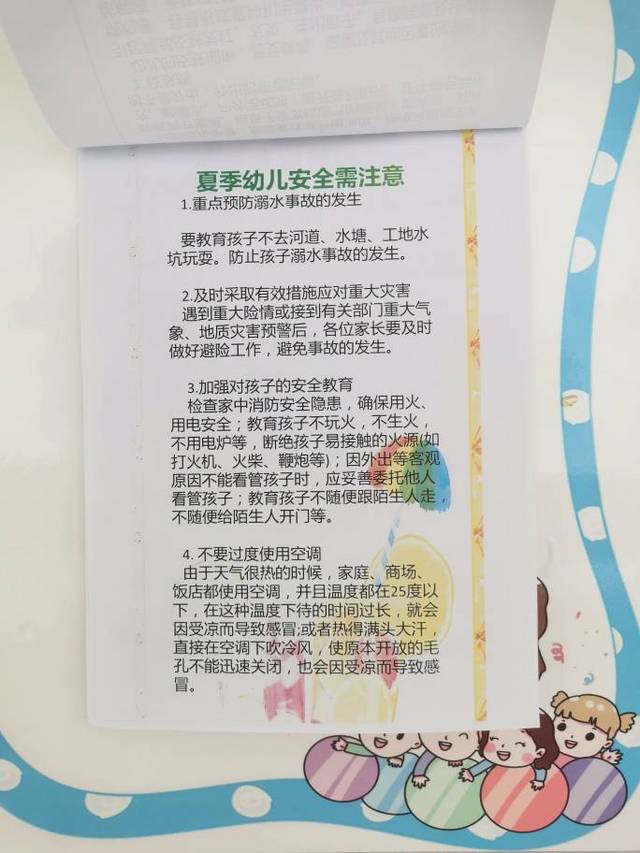 夏季幼儿安全需注意
1.重点预防溺水事故的发生
要教育孩子不去河道、水塘、工地水
坑玩耍。防止孩子溺水事故的发生。
2.及时采取有效措施应对重大灾害
遇到重大险情或接到有关部门重大气
象、地质灾害预警后，各位家长要及时
做好避险工作，避免事故的发生。
3.加强对孩子的安全教育
检查家中消防安全隐患，确保用火、
用电安全；教育孩子不玩火，不生火，
不用电炉等，断绝孩子易接触的火源(如
打火机、火柴、鞭炮等)；因外出等客观
原因不能看管孩子时，应妥善委托他人
看管孩子；教育孩子不随便跟陌生人走，
不随便给陌生人开门等。
4. 不要过度使用空调
由于天气很热的时候，家庭、商场、
饭店都使用空调，并且温度都在25度以
下，在这种温度下待的时间过长，就会
因受凉而导致感冒;或者热得满头大汗，
直接在空调下吹冷风，使原本开放的毛
孔不能迅速关闭，也会因受凉而导致感
冒。